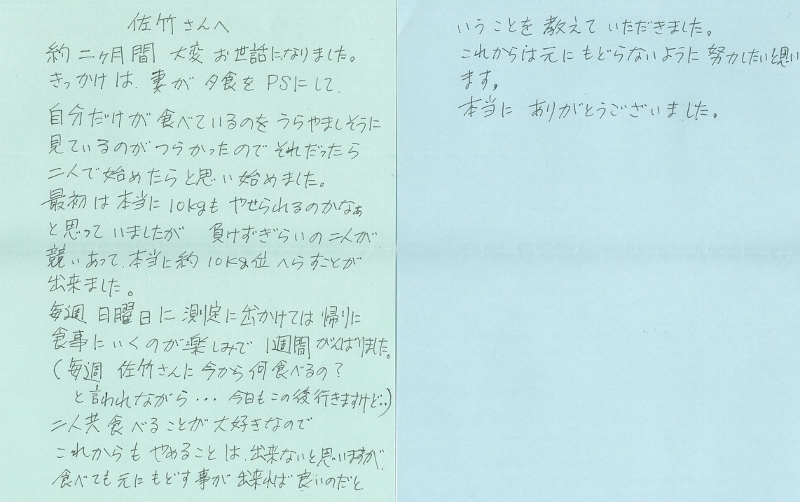 佐竹さんへ
約二ヶ月間 大変お世話になりました。
きっかけは、妻が夕食をPSにして、
自分だけが食べているのをうらやましそうに
見ているのがつらかったのでそれだったら
二人で始めたらと思い始めました。
最初は本当に10kgもやせられるのかなぁ
と思っていましたが 負けずぎらいの二人が
競いあって、本当に約10kg位へらすことが
出来ました。
毎週日曜日に測定に出かけては帰りに
食事にいくのが楽しみで1週間がんばりました。
(毎週 佐竹さんに今から何食べるの?
と言われながら・・・今日もこの後行きますけど‥)
二人共食べることが大好きなので
これからもやめることは、出来ないと思いますが、
食べても元にもどす事が出来れば良いのだと
いうことを教えていただきました。
これからは元にもどらないように努力したいと思い
ます。
本当にありがとうございました。